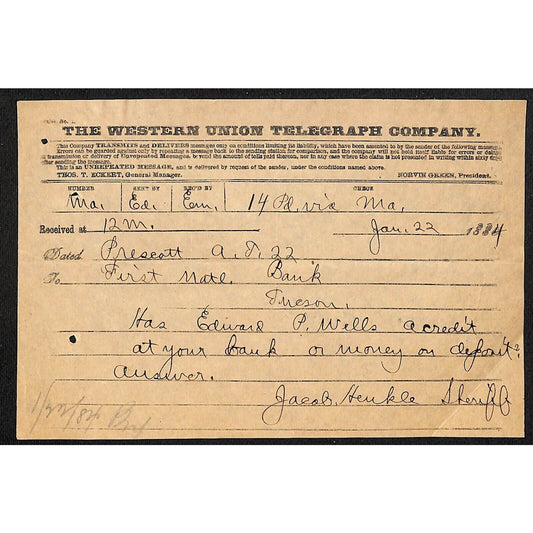 THE WESTERN UNION TELEGRAPH COMPANY.
This Company TRANSMITS and DELIVERS messages only on conditions limiting its liability, which have been assented to by the sender of the following message.
Errors can be guarded against only by repeating a message back to the sending station for comparison, and the company will not hold itself liable for errors or delays
in transmission or delivery of Unrepeated Messages, beyond the amount of tolls paid thereon, nor in any case where the claim is not presented in writing within sixty days
after sending the message.
This is an UNREPEATED MESSAGE, and is delivered by request of the sender, under the conditions named above.
THOS. T. ECKERT, General Manager. NORVIN GREEN, President.
NUMBER SENT BY REC'D BY CHECK
Ma. Ed. Em. 14 Pd. via Ma.
Received at 12 M. Jan. 22 1884
Dated Prescott A. T. 22
To First Natl. Bank
Tucson.
Has Edward P. Wells a credit
at your bank or money on deposit?
Answer.
Jacob Henkle Sheriff